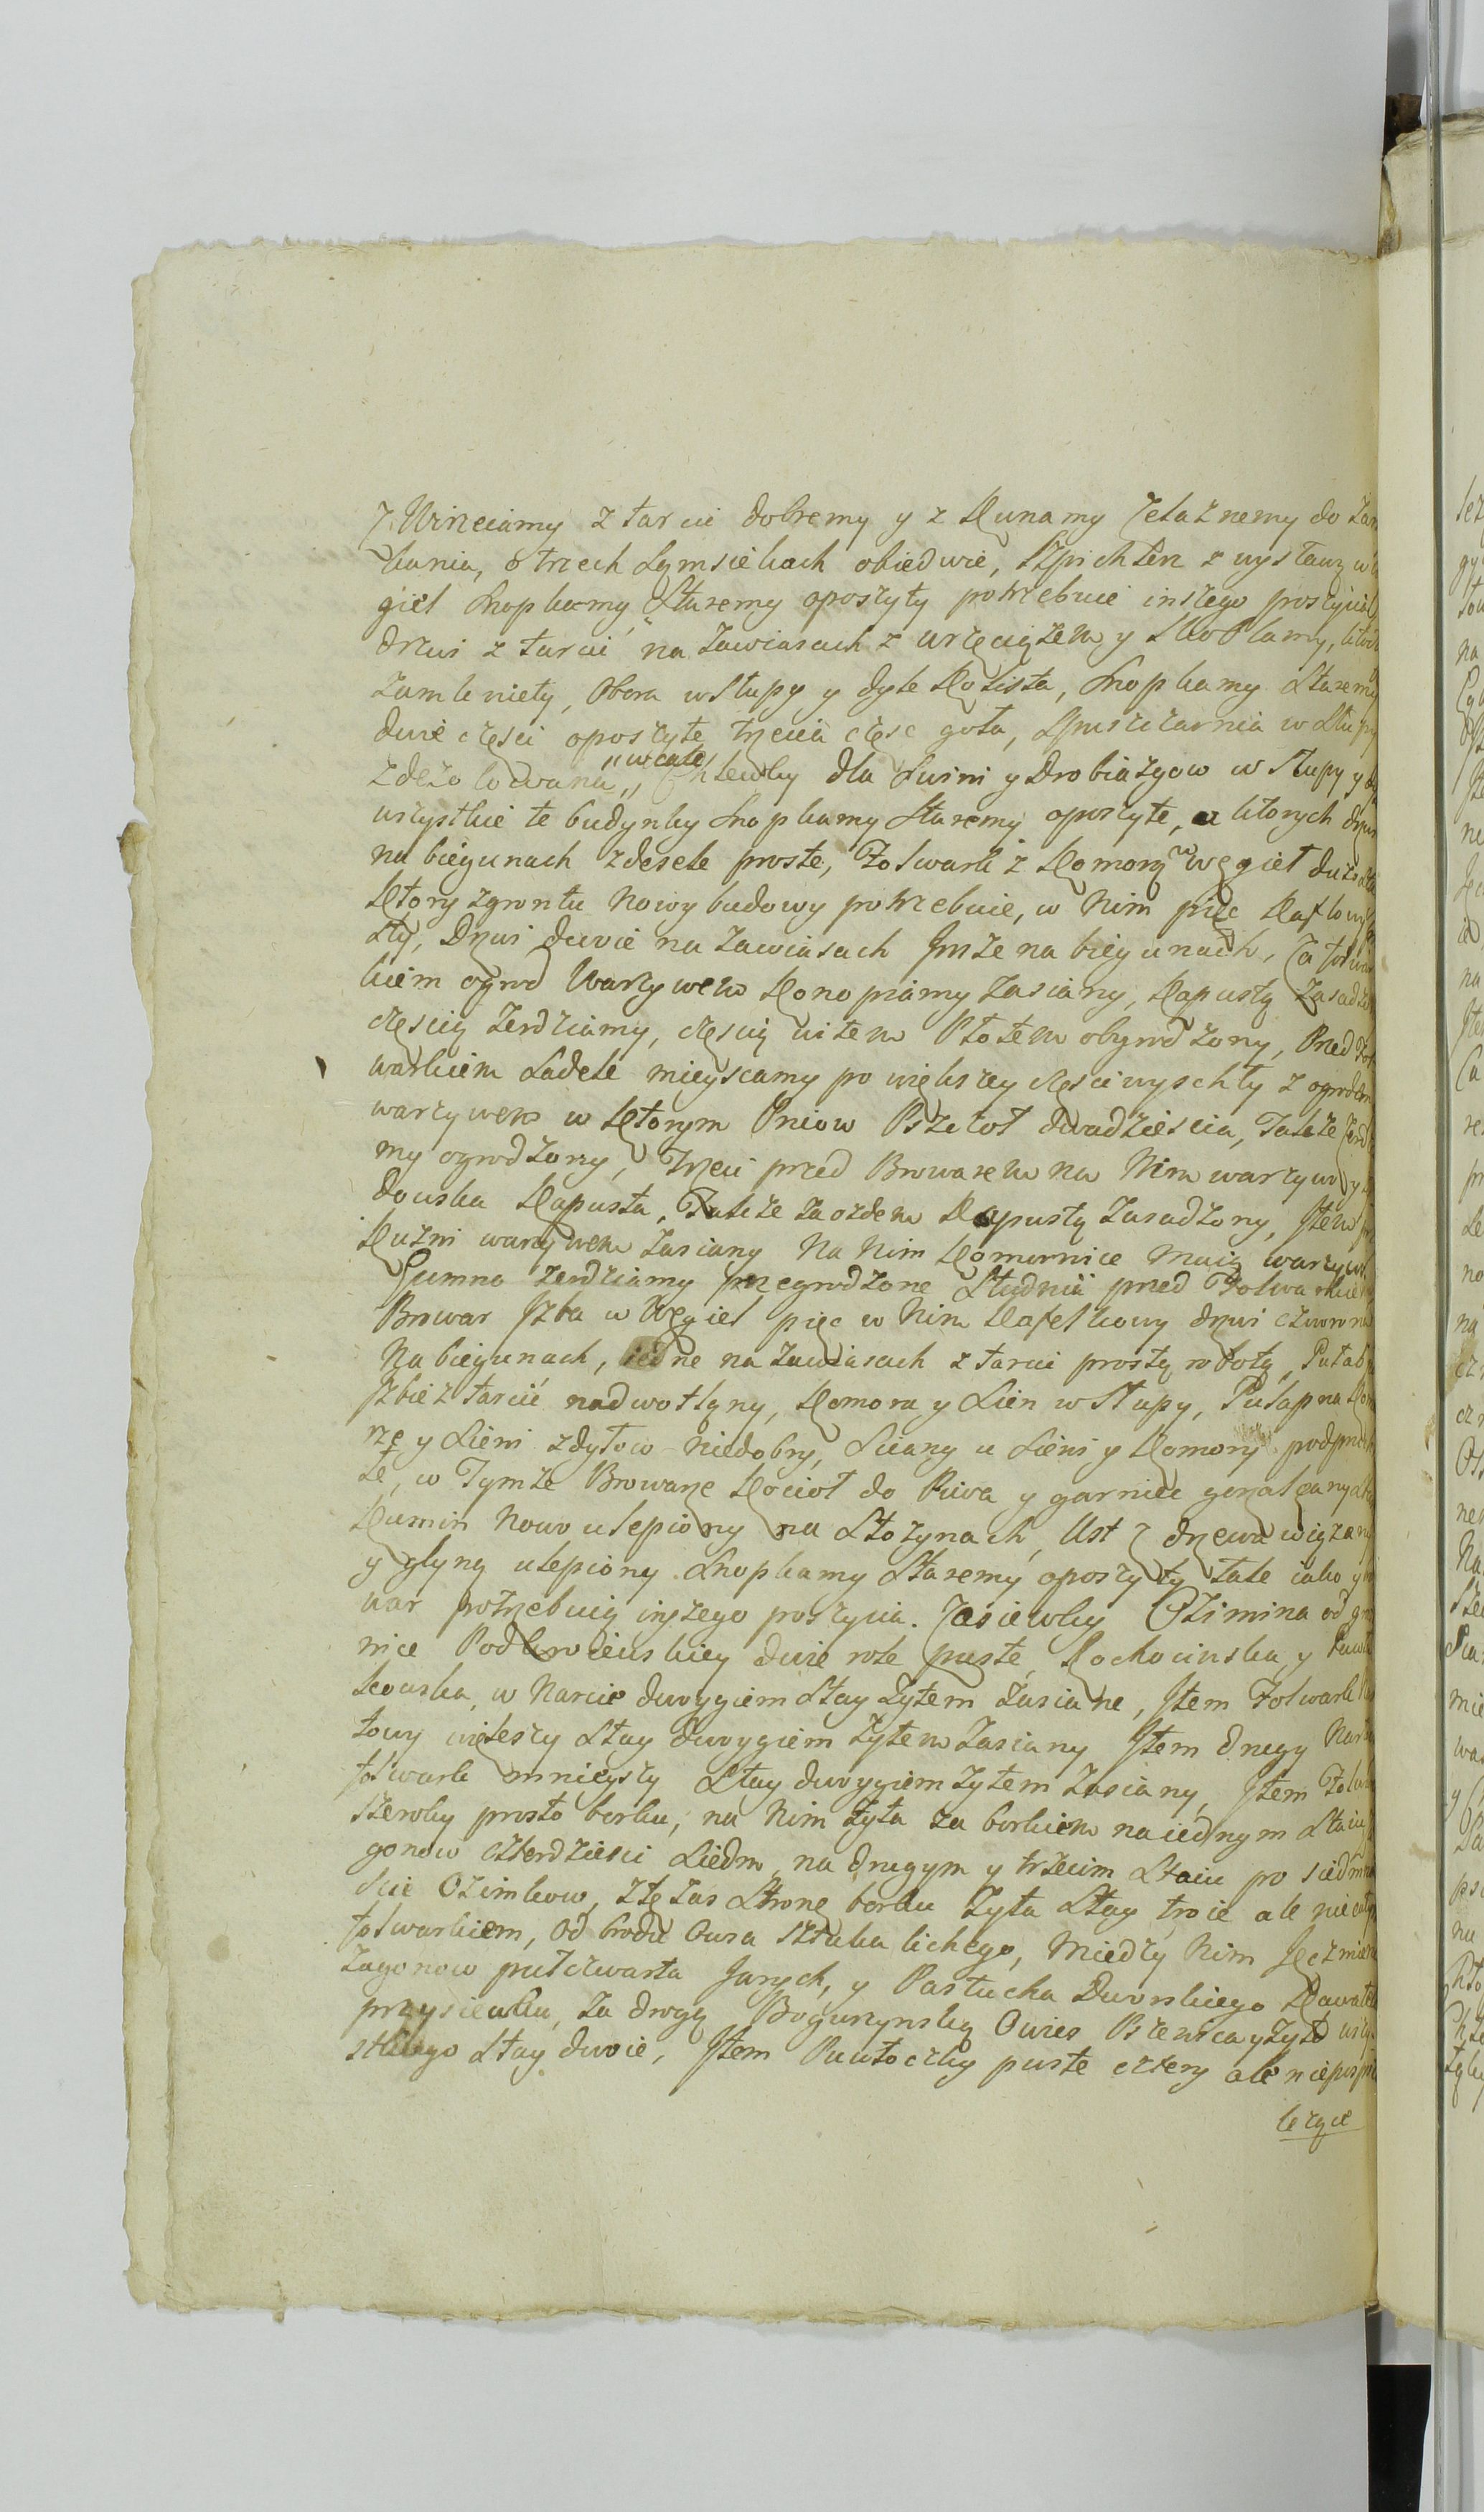 z Wrzeciamy z tarcic dobremy y z Kunamy Żelaznemy do Zam
kania, o trzech Sąmsiekach obiedwie, Szpichlerz z wystawą w wę
gieł Snopkamy Staremy oposzyty potrzebuie inszego poszycia
drzwi z tarcic na zawiasach z wrzeciązem y Skoblamy, ktore
zamknięty, Obora w Słupy y dyle Kolista, Snopkamy Staremy
dwie części oposzyte trzecia częsc goła, Spuszczarnia w Słupy
zdezolowana „wcale„ Chlewky dla Swini y Drobiazgow w Słupy y dy
wszystkie te budynky Snopkamy Staremy oposzyte, u ktorych drzwi
na biegunach z desek proste, Folwark z Komorą w Węgieł duzo
Ktory zgrontu Nowy budowy potrzebuie, w Nim piec Kaflowy
sty, Drzwi dwie na zawiasach Insze na biegunach, Za folwar
kiem ogrod Warzywem Konopiamy zasiany, Kapustą zasadzo
częscią żerdziamy, częscią witem Płotem obgrodzony, Przed Fol
warkiem Sadek mieyscamy po większey częsci wyschły z ogrodem
warzywem w Ktorym Pniow Pszczoł dwadziescia, Takze Żerdz
my ogrodzony, Trzeci przed Browarem na Nim warzywo y
dowska Kapusta, Takze za ozdem Kapustą zasadzony, Item
Kuzni warzywem zasiany Na Nim Komornice Maią warzywo
Gumno żerdziamy przegrodzone Studnia przed Folwarkiem
Browar Izba w Węgieł piec w Nim Kaflowy drzwi czworo na
Na biegunach, iedne na zawiasach z tarcic prostą robotą, Pułab
Izbie z tarcic nadwotlony, Komora y Sien w Słupy, Pułap na Komo
rze y Sieni z dylow niedobry, Sciany u Sieni y Komory podpruch
łe, w Tymze Browarze Kocioł do Piwa y garniec gorzałczany
Kumin Nowo ulepiony na Stozynach, Ust z drzewa wiązany
y gliną ulepiony Snopkamy Staremy oposzyty tak iako y Bro
war potrzebuią inszego poszycia. Zasiewky Ozimina od gra
nice Podkrocienskiey dwie role puste, Kochocinska y Pawle
kowska, w Narcie dwoygiem Stay Zytem zasiane, Item Folwark
towy większy Stay dwoygiem Zytem Zasiany Item drugy Nar
folwark mnieyszy Stay dwoygiem zytem zasiany, Item Folw
szeroky prosto borku, na Nim żyta za borkiem na iednym Staiu
gonow czterdziesci Siedm, na drugym y trzecim Staiu po siedmna
scie Ozimkow, z tę zas Strone borku Zyta Stay troie ale nie cał
folwarkiem, Od brodu Owsa Sztuka lichego, Miedzy Nim Jęczmien
zagonow pułczwarta Jarych, y Pastucha Dworskiego Kawałek
przysiewku, za drogą Boguszynską Owies Pszenica y Zyto wszy
stkiego Stay dwoie, Item Pawłoczky puste cztery ale niepospo
lezące